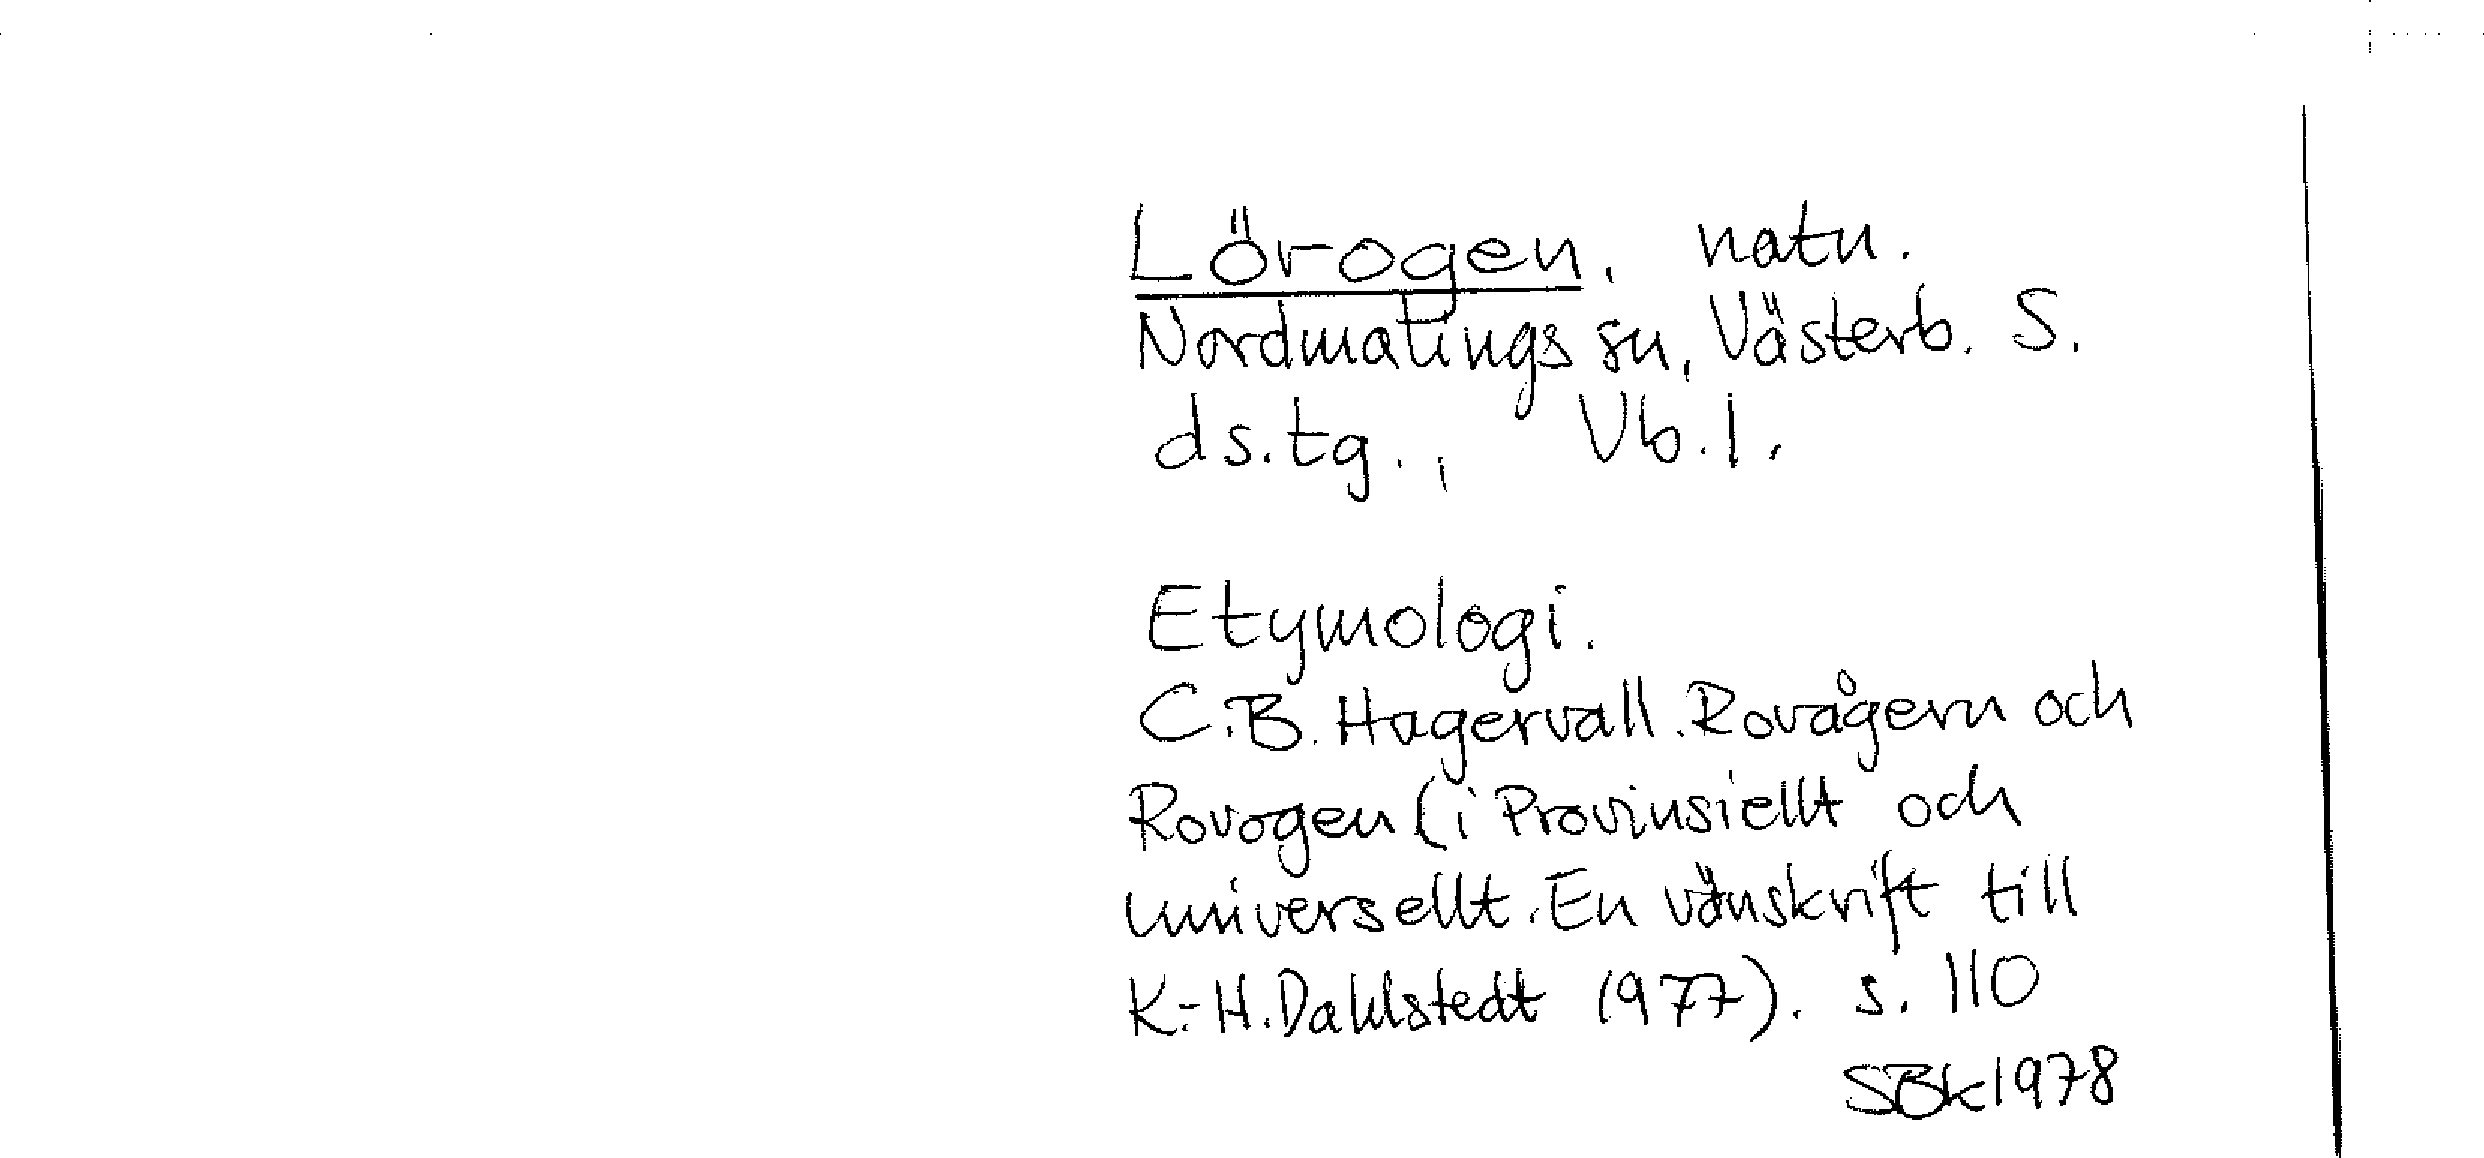 Lörogen, natn.
Nordmalings sn, Västerb. S.
ds.tg., Vb.l.
Etymologi.
C.B. Hagervall. Rovågern och
Rovogen (i Provinsiellt och
universellt. En vänskrift till
K.-H. Dahlstedt 1977). s. 110
SBk 1978